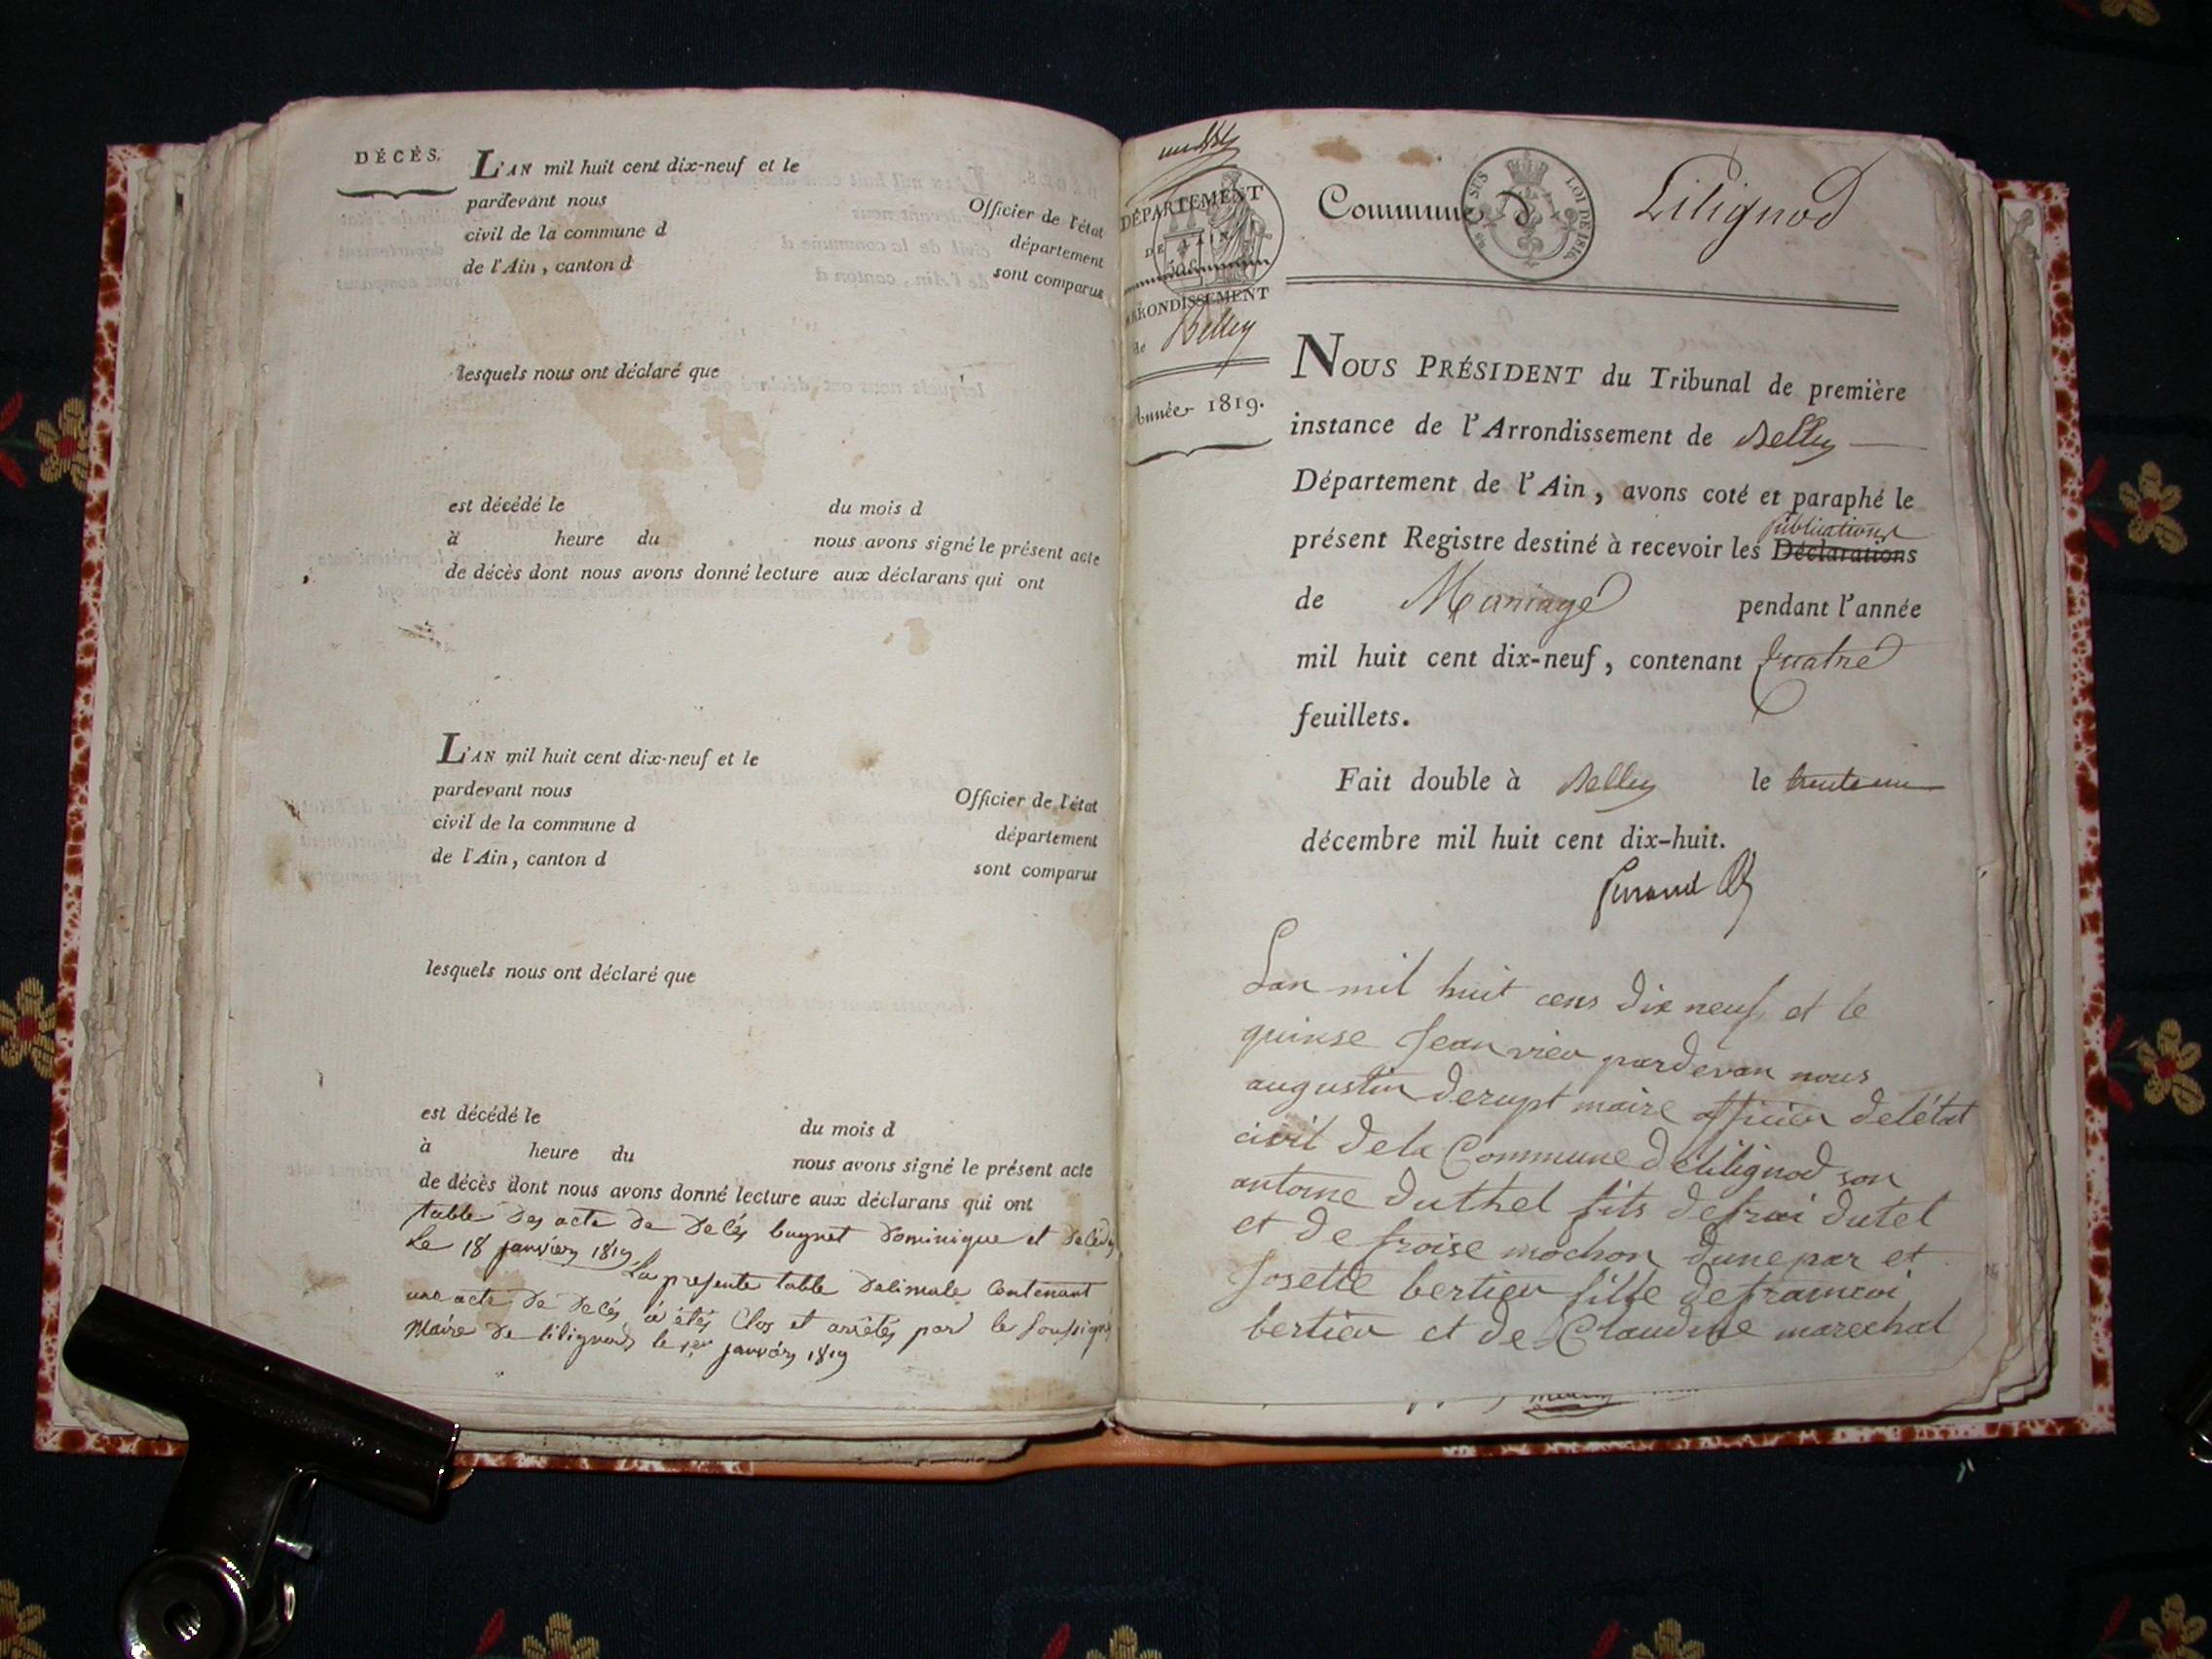 DÉCÈS.
L'AN mil huit cent dix-neuf et le
pardevant nous Officier de l'état
civil de la commune d département
de l'Ain, canton d sont comparus
lesquels nous ont déclaré que
est décédé le du mois d
à heure du nous avons signé le présent acte
de décès dont nous avons donné lecture aux déclarans qui ont
L'AN mil huit cent dix-neuf et le
pardevant nous Officier de l'état
civil de la commune d département
de l'Ain, canton d sont comparus
lesquels nous ont déclaré que
est décédé le du mois d
à heure du nous avons signé le présent acte
de décès dont nous avons donné lecture aux déclarans qui ont
table des acte de decés bugnet dominique et decédé
Le 18 janvier 1819
La presente table Contenant
une acte de decés à étés Clos et arrêtés par le soussigné
Maire de lilignod le 1er janvier 1819
DÉPARTEMENT
DE L'AIN
ARRONDISSEMENT
de Belley
Année 1819.
Commune d Lilignod
LOI DE 1816
NOUS PRÉSIDENT du Tribunal de première
instance de l'Arrondissement de Belley
Département de l'Ain, avons coté et paraphé le
publications
présent Registre destiné à recevoir les Déclarations
de Mariage pendant l'année
mil huit cent dix-neuf, contenant quatre
feuillets.
Fait double à Belley le trente un
décembre mil huit cent dix-huit.
Lan mil huit cens dix neuf et le
quinse Jeanvier pardevan nous
augustin derupt maire officier deletat
civil dela Commune delilignod son
antoine duthel fils defrai dutel
et de froise mochon dune par et
Josette bertier fille deframcoi
bertier et de Claudine marechal